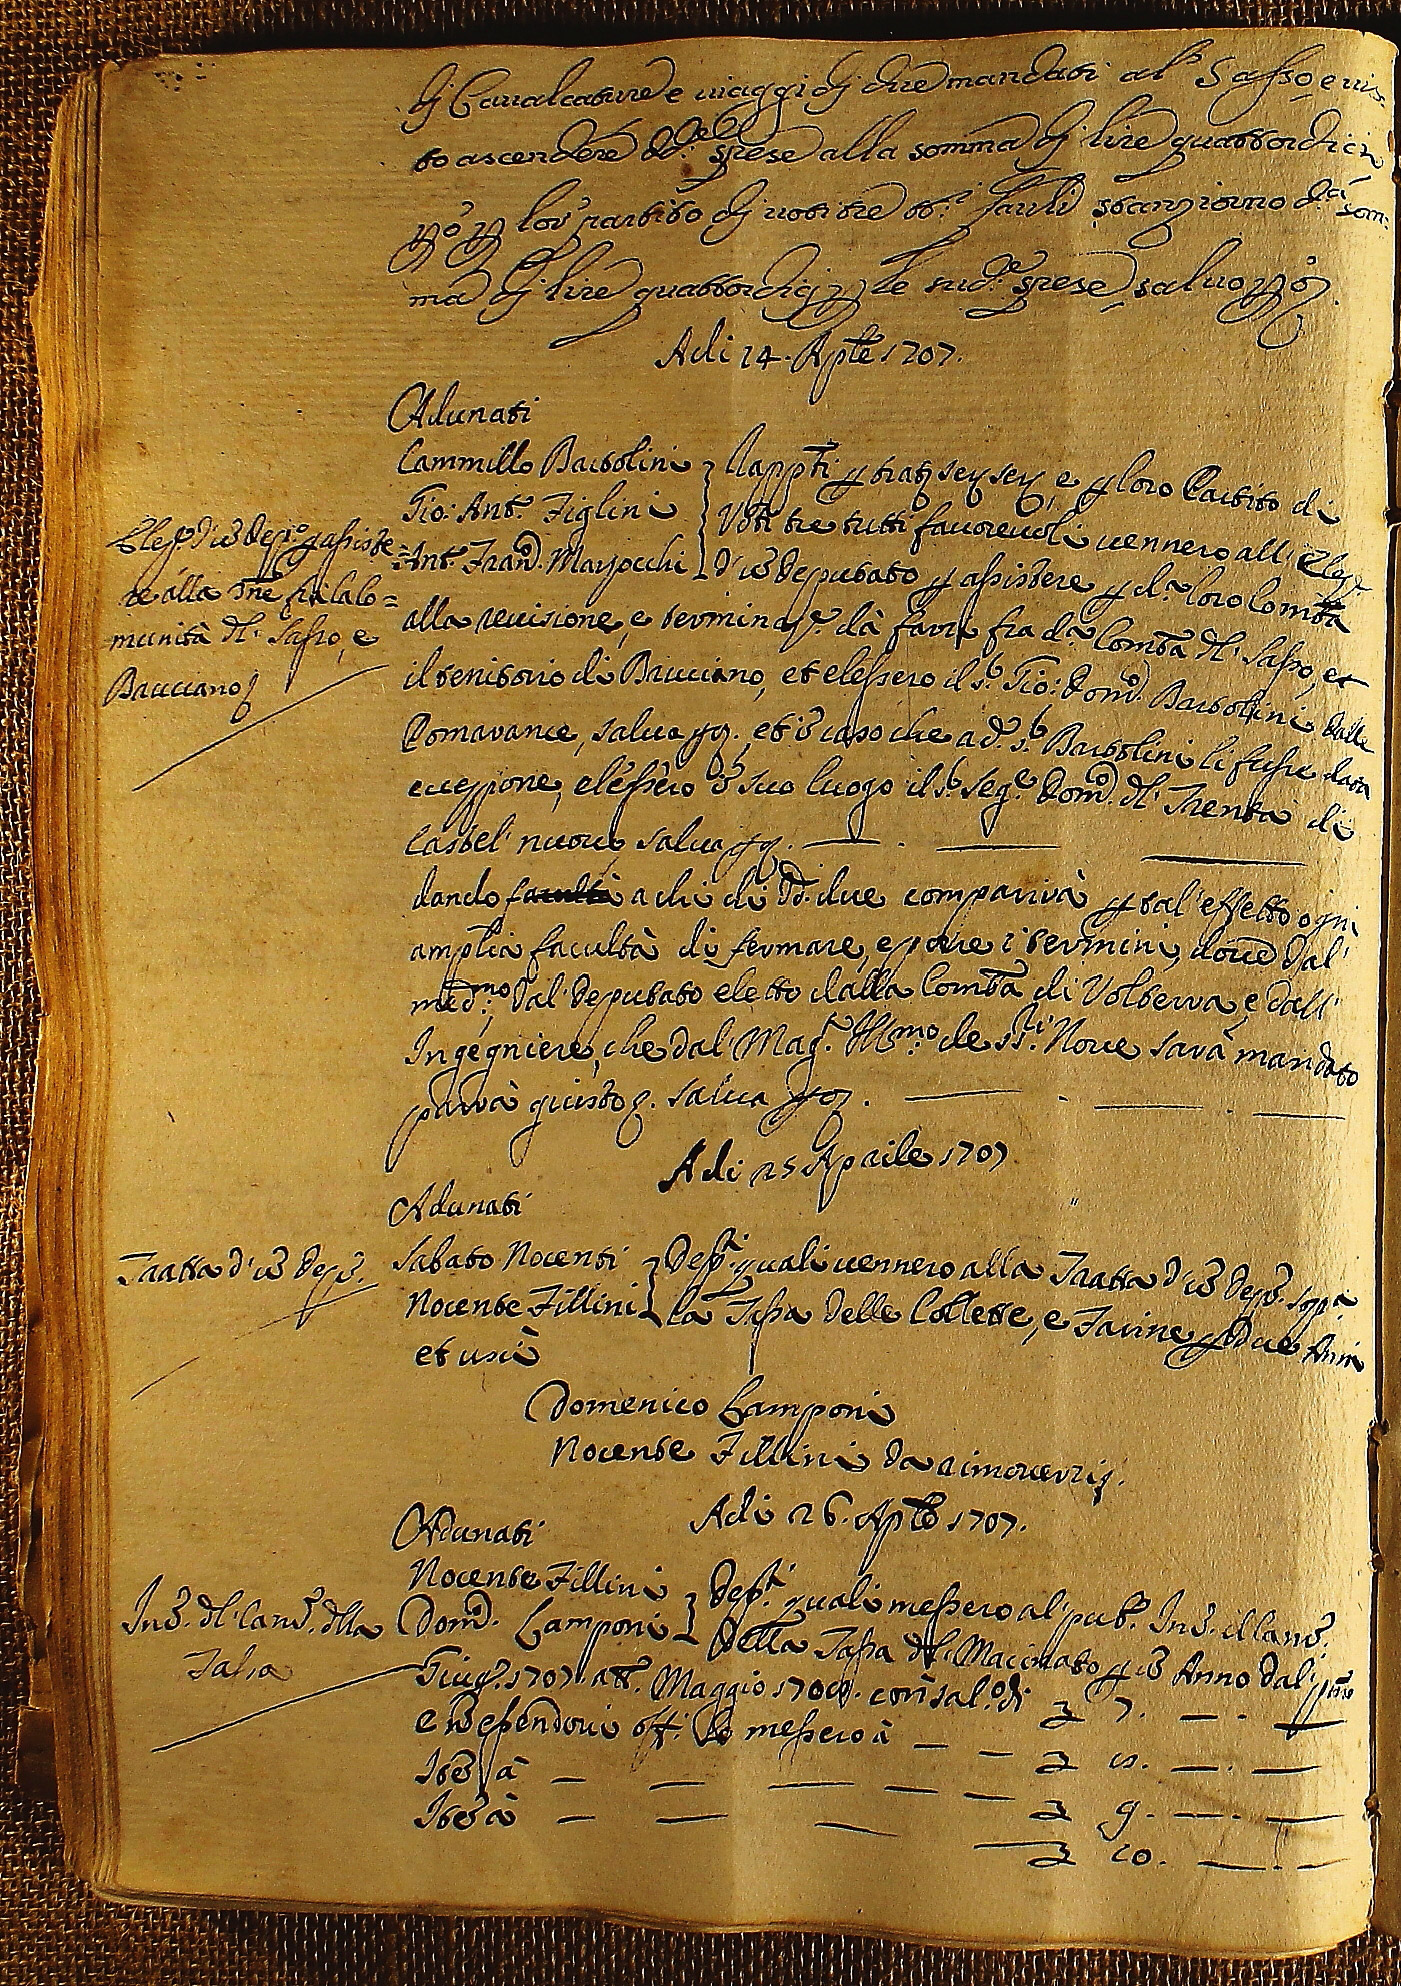 di Cavalcature e viaggi di due mandati al Sasso e vis=
to ascendere dd.e spese alla somma di lire quattordici
loro partito di voti tre tt.i favli stanziorno d.a som=
ma di lire quattordici le sud.e spese, salvo
Adi 14. Aple 1707.
Adunati
Cammillo Bartolini
Gio: Ant.o Figlini
Ant.o Fran.o Marzocchi
e p loro Partito di
Voti tre tutti favorevoli vennero all' Elez.e
d'un deputato p assistere p d.a loro Comtà
alla revisione, e terminaz.e dà farsi fra d.a Comtà del Sasso, et
il teritorio di Bruciano, et elessero il s.r Gio: Dom.o Bartolini dalle
Pomarance, salva et in caso che a d.o s.r Bartolini li fusse data
eccezzione, elessero in suo luogo il s.r Seg.e Dom.o del Trenta di
Castel nuovo salva
Elez.e d'un Dep.o p assiste=
re alla fra la Co=
munità del Sasso, e
Bruciano
dando facultà a chi di dd. due comparirà p tal' effetto ogni
amplia facultà di fermare, e porre i termini, dove dal
med.mo, dal deputato eletto dalla Comtà di Volterra, e dall'
Ingegniere, che dal Mag.o Ill.mo de ss.ri Nove sarà mandato
parrà giusto salva
Adi 25 Aprile 1707
Adunati
Sabato Nocenti
Nocente Fillini
Dep.ti quali vennero alla Tratta d'un Dep.o sopa
la Tassa delle Collette, e Farine p due Anni
et uscì
Tratta d'un Dep.o
Domenico Lamponi
Nocente Fillini da
Adi 26. Aple 1707.
Adunati
Nocente Fillini
Dom.o Lamponi
Dep.ti quali messero al pub.o Inc.o il Cam.o
della Tassa del Macinato p un Anno dal p.mo
Giug.o 1707 a tt.o Maggio 1708. con sal.o di 7.
Inc.o del Cam.o della
Tassa
e non essendovi off.i lo messero à
Item à
Item à 9.
10.